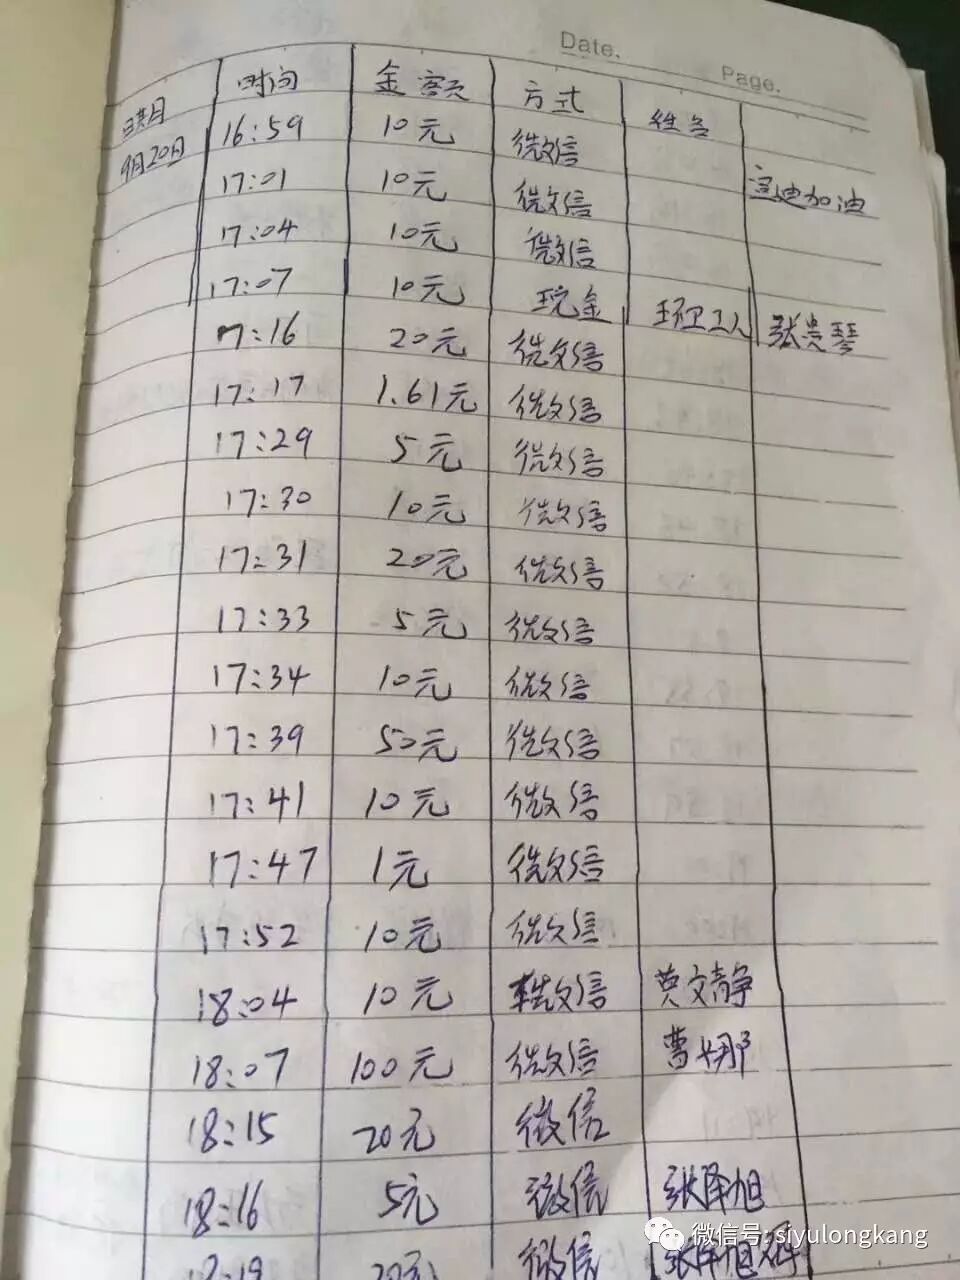 Date.
Page.
日期 时间 金额 方式 姓名
9月20日 16:59 10元 微信
17:01 10元 微信 宣迪加油
17:04 10元 微信
17:07 10元 现金 环卫工人 张贵琴
17:16 20元 微信
17:17 1.61元 微信
17:29 5元 微信
17:30 10元 微信
17:31 20元 微信
17:33 5元 微信
17:34 10元 微信
17:39 50元 微信
17:41 10元 微信
17:47 1元 微信
17:52 10元 微信
18:04 10元 微信 黄文静
18:07 100元 微信 曹娜
18:15 20元 微信
18:16 5元 微信 张泽旭
18:19 20元 微信 张泽旭
微信号: siyulongkang